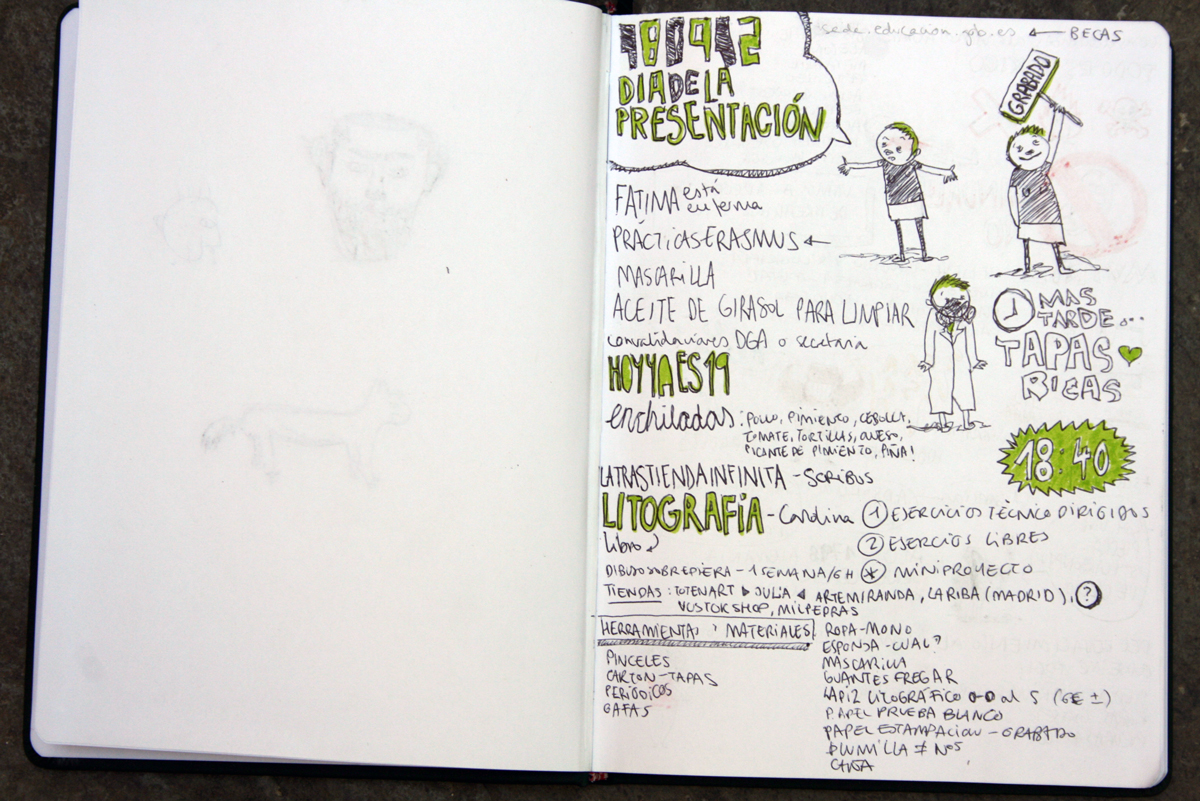 180912
DIA DE LA
PRESENTACIÓN
sede.educacion.gob.es ← BECAS
GRABADO
FATIMA está
enferma
PRÁCTICAS ERASMUS ←
MASCARILLA
ACEITE DE GIRASOL PARA LIMPIAR
convalidaciones DGA o secretaria
MAS
TARDE...
TAPAS
RICAS
HOY YA ES 19
enchiladas: POLLO, PIMIENTO, CEBOLLA,
TOMATE, TORTILLAS, QUESO,
PICANTE DE PIMIENTO, PIÑA!
18:40
LATRASTIENDAINFINITA - SCRIBUS
LITOGRAFÍA - Carolina
libro
① EJERCICIOS TÈCNICO DIRIGIDOS
② EJERCIOS LIBRES
DIBUJO SOBRE PIERA - 1 SEMANA/6H
* MINIPROYECTO
TIENDAS: TOTENART ▸ JULIA ◂ ARTEMIRANDA, LA RIBA (MADRID), ?
VOSTOK SHOP, MILPEDRAS
HERRAMIENTAS Y MATERIALES
PINCELES
CARTON-TAPAS
PERIÓDICOS
GAFAS
ROPA-MONO
ESPONJA-CUAL?
MASCARILLA
GUANTES FREGAR
LAPIZ LITOGRÁFICO 00 al 5 (6€ ±)
PAPEL PRUEBA BLANCO
PAPEL ESTAMPACIÓN - GRABADO
PLUMILLA ≠ Nos